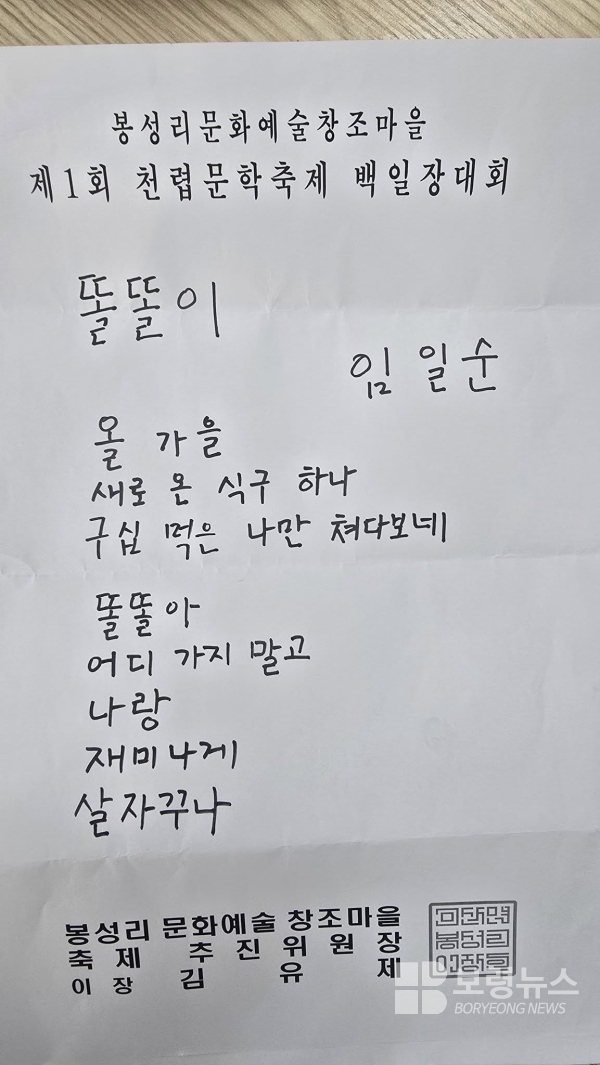 봉성리문화예술창조마을
제1회 천렵문학축제 백일장대회
똘똘이
임일순
올 가을
새로 온 식구 하나
구십 먹은 나만 쳐다보네
똘똘아
어디 가지 말고
나랑
재미나게
살자꾸나
봉성리 문화예술 창조마을
축제 추진위원장
이장 김유제
보령뉴스
BORYEONG NEWS